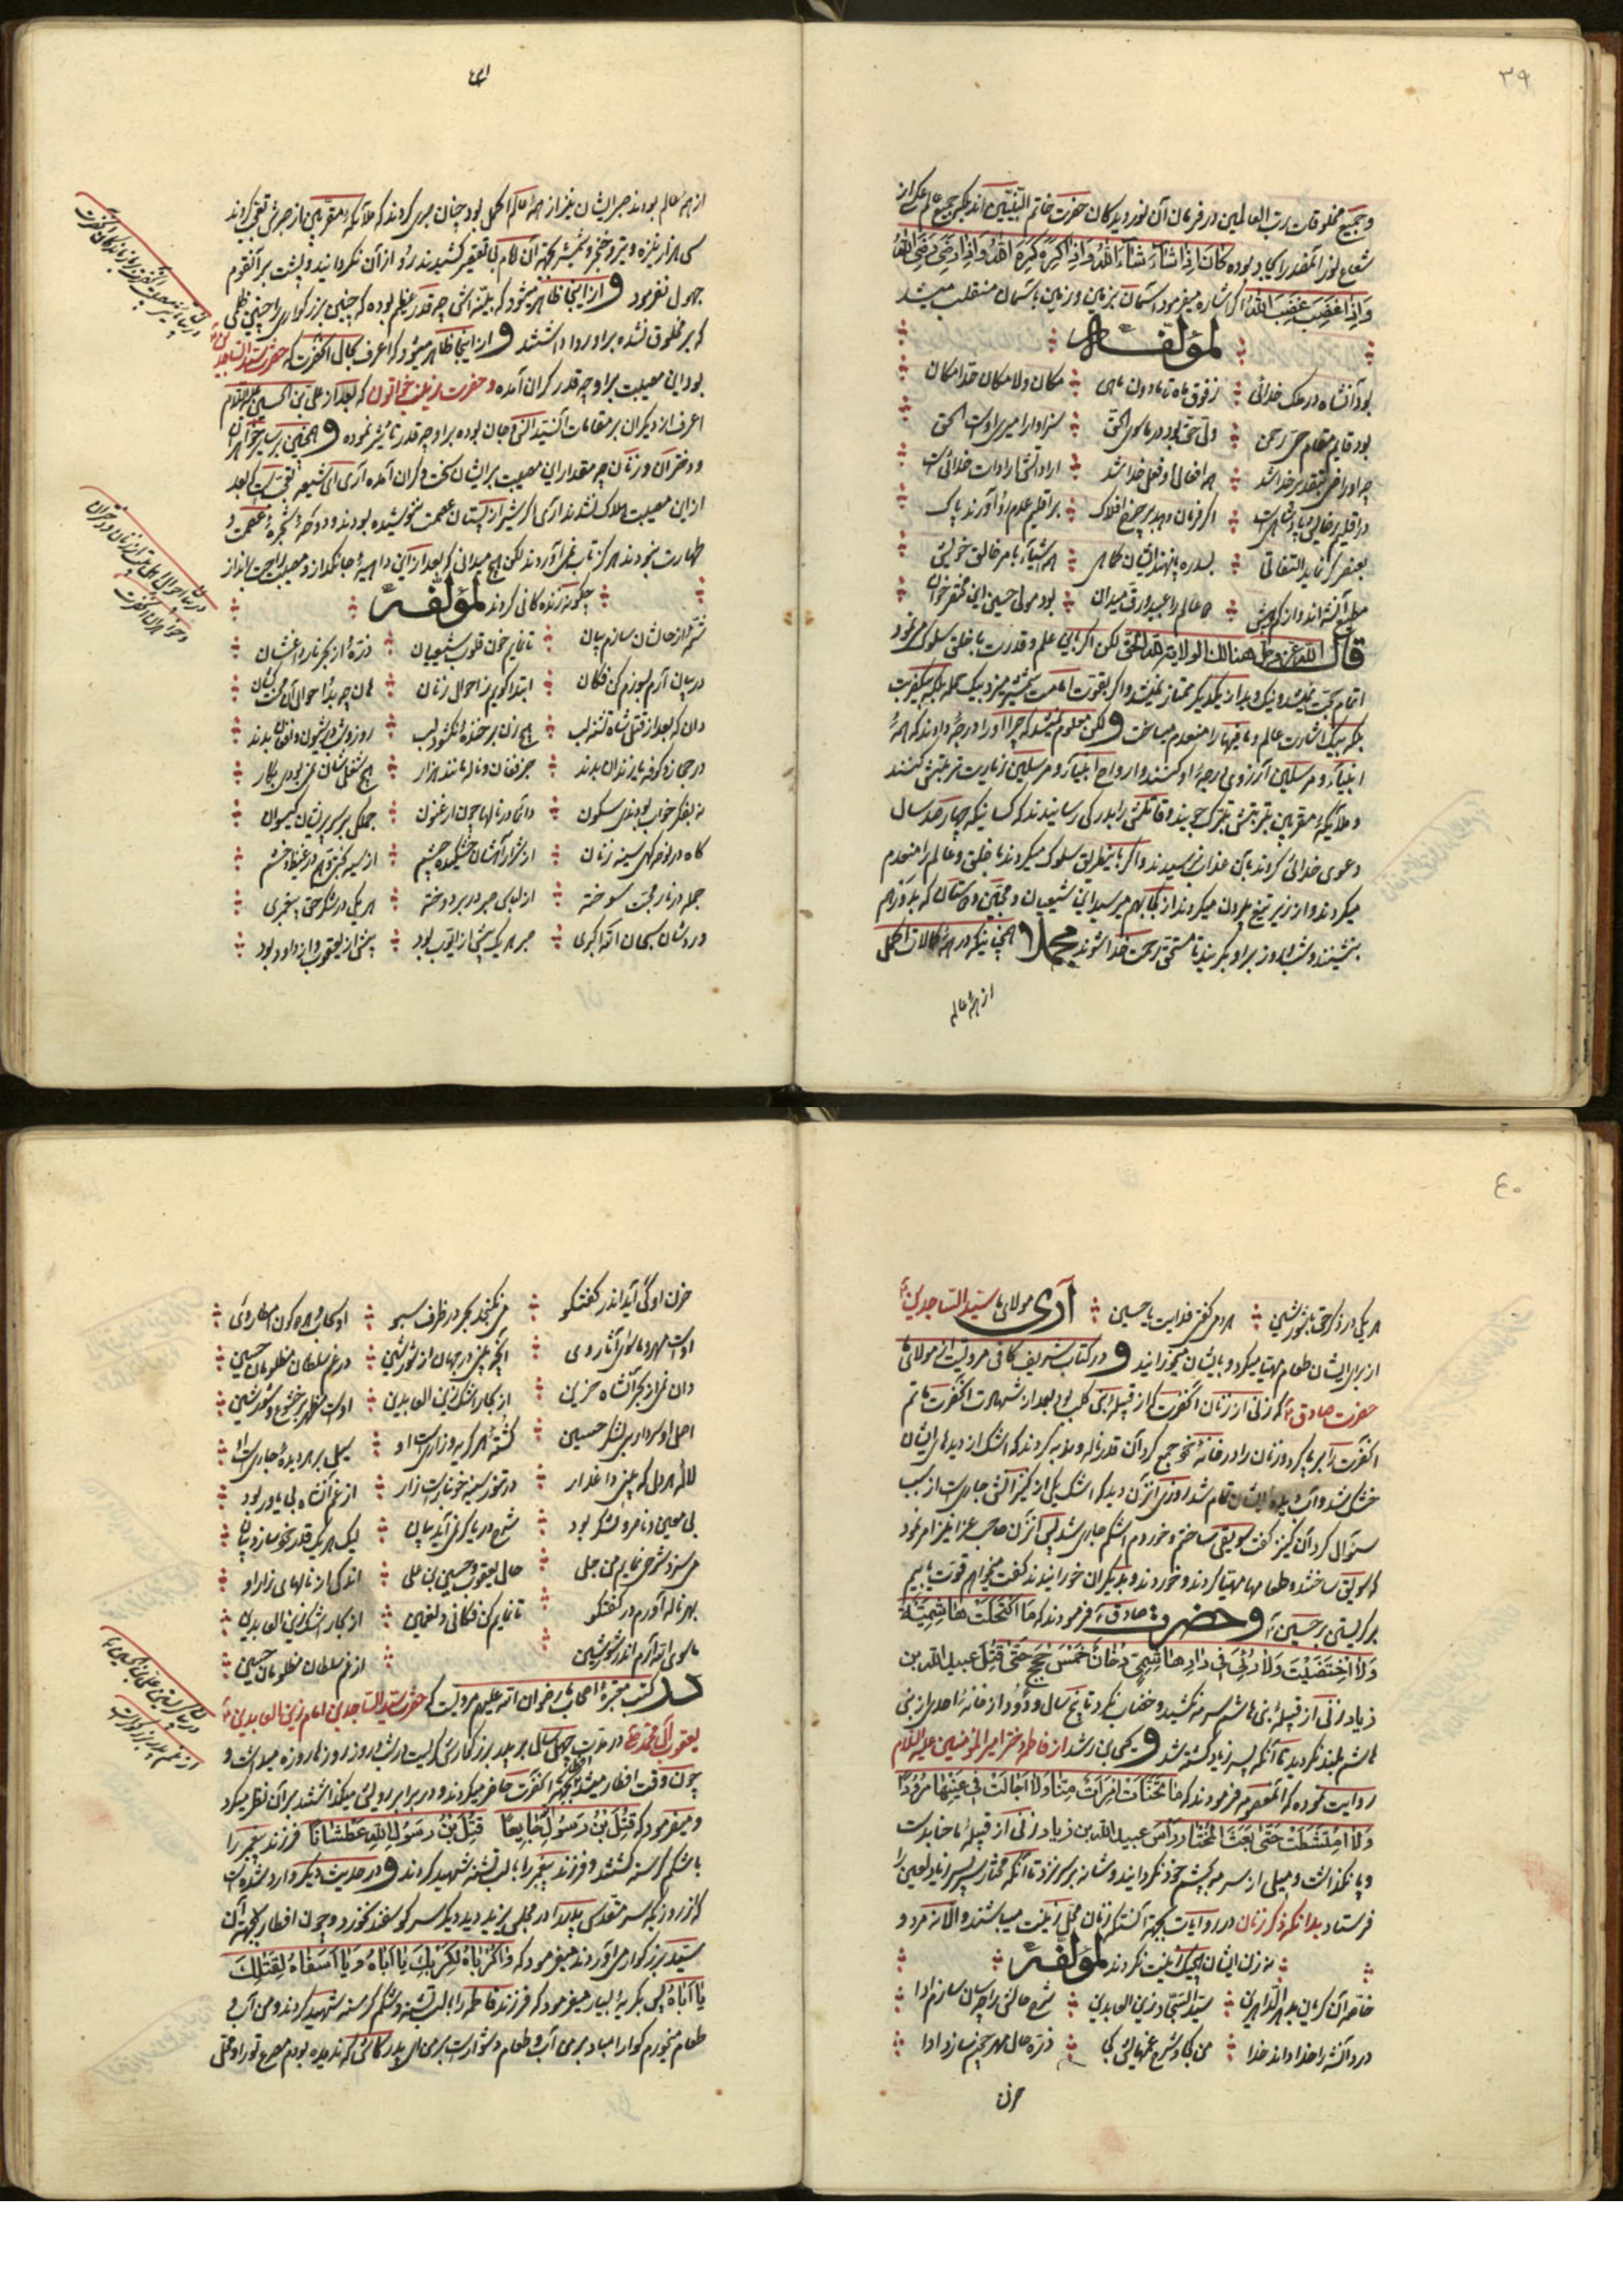 ۳۹
و جمیع مخلوقات رب العالمین در فرمان آن نور دیدکان حضرت خاتم النبیین اند بلکه جمیع عالم
شعاع نور آنمقدر ایجاد بوده کان اذا شاء شاء الله و اذا کره کره الله و اذا رضی رضی الله
و اذا غضب غضب الله اکر اشاره میفرمود آسمان بزمین و زمین باسمان منقلب میشد
لمؤلفه
بود آنشاه در ملک خدائی ز فوق ماه تا مادون ماهی مکان و لامکان خدامکان
بود قایم مقام حی رحمن ولی حق بود در ماسوی الحق سزاوار امیری اوست الحق
چو او راضی بتقدیر خدا شد همه افعال او فعل خدا شد ارادتش ارادات خدائی است
در اقلیم خدائی پادشاهی است اکر فرمان دهد بر چرخ افلاک بر اقلیم علوم رو آورند پاک
بعنصر کر نماید التفاتی همه اشیاء بامر خالق خویش
مطیع آنشه اند از کم و بیش همه عالم را عبید و رق میدان بود مولی حسین این مختصر خوان
قال الله عز و جل هنالک الولایة لله الحق لکن اکر باین علم و قدرت با خلق سلوک میفرمود
اتمام حجت نمیشد و نیک و بد از یکدیکر ممتاز نمیشد و اکر بقوت امامت شمشیر میزد بیک حمله بلکه بیک ضربت
بلکه بیک اشارت عالم و ما فیها را منعدم میساخت و لکن معلوم نمیشد که چرا او را درجه دادند که همه
انبیاء و مرسلین آرزوی درجه او کنند و ارواح انبیاء و مرسلین زیارت تربتش کنند
و ملائکه مقربین بتربتش تبرک جویند و قاتلش را بدرکی رسانیدند که کسانیکه چهار صد سال
دعوی خدائی کردند بآن عذاب نرسیدند و اکر باینطریق سلوک میکردند با خلق و عالم را منعدم
میکردند و از زیر تیغ بیرون میکردند از کجا بهم میرسید این شیعیان و محبین و دوستان که بدور هم
بنشینند و شب و روز بر او بکریند تا مستحق رحمت خدا شوند مجملا همچنانیکه در همه کمالات اکمل
از همه عالم
از همه عالم بودند صبر ایشان نیز از همه عالم اکمل بود چنان صبری کردند که ملائکه مقربین از صبرش تعجب کردند
سی هزار نیزه و تیر و خنجر و شمشیر بجهة آن امام بی تقصیر کشیدند رو از آن نکردانید و پشت بر آنقوم
جهول نفرمود و از اینجا ظاهر میشود که بلیه اش چه قدر عظیم بوده که چنین بزرکواری را چنین ظلمی
که بر مخلوق نشده بر او روا داشتند و از اینجا ظاهر میشود که اعرف بحال آنحضرت که حضرت سید الساجدین
بود این مصیبت بر او چه قدر کران آمده و حضرت زینب خواتون که بعد از علی بن الحسین علیه السلام
اعرف از دیکران بر مقامات آن سید انس و جان بوده بر او چه قدر تاثیر نموده و همچنین بر سایر خواهران
و دختران و زنان چه مقدار این مصیبت بر ایشان سخت و کران آمده آری ای شیعه تعجب است که بعد
از این مصیبت هلاک نشدند آری اکر شیر از پستان عصمت ننوشیده بودند و دوحه شجره عصمت و
طهارت نبودند هرکز تاب نمی آوردند لکن هیچ میدانی که بعد از این داهیه جانکداز و مصیبت راحت برانداز
چکونه زنده کانی کردند لمؤلفه
شمه از حالشان سازم بیان تا نمایم خون قلوب شیعیان ذره از بحر نار داغشان
در بیان آرم بسوزم کن فکان ابتدا کویم ز احوال زنان تا چه بد احوال آن محنت کشان
دان که بعد از قتل شاه تشنه لب هیچ زن بر خنده نکشود لب روز و شب در شیون و افغان بدند
در حجاز و کوفه یا زندان بدند جز فغان و ناله مانند هزار هیچ شغلی شان نمی بودی بکار
نه بفکر خواب بودندی سکون دائما در نالها چون ارغنون جملکی بر سر پریشان کیسوان
کاه در نوحه کهی سینه زنان از شرار آهشان خشکیده چشم
جمله در نار محبت سوخته از لباس صبر در بر دوخته هر یکی در شکر حق پیغمبری
وردشان سبحان الله اکبری صبر هر یک بیش از ایوب بود بیش از یعقوب و از داود بود
در بیان
۴۰
هر یکی در ذکر حق با شور و شین هر دمی کفتی فدایت یا حسین آری مولای ما سید الساجدین
از برای ایشان طعام مهیا میکرد و بایشان میخورانید و در کتاب شریف کافی مرویست از مولای ما
حضرت صادق که زنی از زنان آنحضرت که از قبیله بنی کلب بود بعد از شهادت آنحضرت ماتم
آنحضرت را بر پا کرد و زنان را در خانه خود جمع کرد آن قدر ناله و ندبه کردند که اشک از دیدهای ایشان
خشک شد و آب دیده ایشان تمام شد روزی آنزن دید که اشک یکی از کنیزانش جاری است از سبب
سئوال کرد آن کنیز کفت سویقی ساختم و خوردم اشکم جاری شد پس آنزن صاحب عزا نیز امر نمود
که سویق ساختند و طعامها مهیا کردند و خوردند و بدیکران خورانیدند کفت میخواهم قوت یابیم
بر کریستن بر حسین و حضرت صادق فرمودند که ما اکتحلت هاشمیة
و لا اختضبت و لا رئی فی دار هاشمی دخان خمس حجج حتی قتل عبید الله بن
زیاد زنی از قبیله بنی هاشم سرمه نکشید و خضاب نکرد تا پنج سال و دود از خانه احدی از بنی
هاشم بلند نکردید تا آنکه پسر زیاد کشته شد و یحیی بن راشد از فاطمه دختر امیر المؤمنین علیه السلام
روایت نموده که آنمعصومه فرمودند که ما تحنات امراة منا و لا اجالت فی عینها مرودا
و لا امتشطت حتی بعث المختار راس عبید الله بن زیاد زنی از قبیله ما خضاب بدست
و پا نکذاشت و میلی از سرمه بچشم خود نکردانید و شانه بر سر نزد تا آنکه مختار سر پسر زیاد لعین را
فرستاد بدانکه ذکر زنان در روایات بجهة آنستکه زنان محل زینت میباشند و الا نه مرد و
نه زن ایشان هیچیک زینت نکردند لمؤلفه
خاصه آن کریان بدهر الداهرین سید السجاد زین العابدین شرح حالش را چسان سازم ادا
درد آنشه را خدا داند خدا من کجا و شرح غمهایش کجا ذره حال مهر چون سازد ادا
حزن
حزن او کی آید اندر کفتکو می نکنجد بحر در ظرف سبو
آنچه بینی در جهان از شور و شین در غم سلطان مظلومان حسین
دان نمی از بحر آنشاه حزین از بکاء اشک زین العابدین اوست مظهر بر خشوع و شور و شین
اصل او سردار بی لشکر حسین کشته هر کریه و زاری است او سیل بر هر دیده جاری است او
لاله هر دل که بینی داغدار در تنور سینه خونبار است زار از غم آنشاه بی یاور بود
بی معین و ناصر و لشکر بود شرح دریا کر نمی آید بیان لیک هر یک قدر خود سازد بیان
می سزد شرحی نمایم من جلی حال یعقوب و حسین بن علی اندکی از نالهای زار او
بهر ناله آورم در کفتکو تا نمایم کن فکانی را غمین از بکاء اشک زین العابدین
ماسوی الله آرم اندر شور و شین از غم سلطان مظلومان حسین
در کتب معتبره اصحاب رضوان الله علیهم مرویست که حضرت سید الساجدین امام زین العابدین
یعقوب آل محمد در مدت چهل سال بر پدر بزرکوارش کریست و شب و روز روزها روزه میداشت و
چون وقت افطار میشد بجهة آنحضرت حاضر میکردند و در برابر رویش میکذاشتند بر آن نظر میکرد
و میفرمود که قتل بن رسول الله جایعا قتل بن رسول الله عطشانا فرزند پیغمبر را
با شکم کرسنه کشتند و فرزند پیغمبر را با لب تشنه شهید کردند و در حدیث دیکر وارد شده است
که از روزیکه سر مقدس پدر را در مجلس یزید دید دیکر سر کوسفند نخورد و چون افطار بجهة آن
سید بزرکوار می آوردند میفرمود که واکرباه لکربک یا اباه و یا اسفاه لقتلک
یا اباه پس بکریه بسیار میفرمود که فرزند فاطمه را با لب تشنه و شکم کرسنه شهید کردند و من آب و
طعام میخورم کوارا مباد بر من آب و طعام دشوار است بر من ای پدر کاش که ندیده بودم مصرع تو را و محل